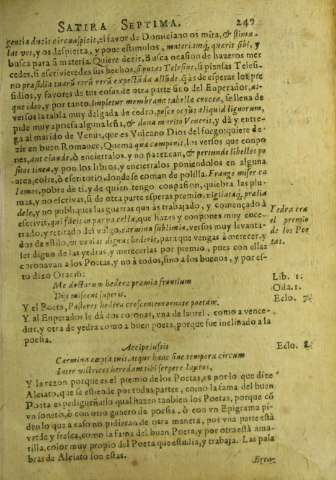 SATIRA SEPTIMA. 249
gentia ducis circunspicit, el favor de Domiciano os mira, & stimu-
las vos, y os despierta, y pone estimulos, materiamq; quærit sibi, y
busca para si materia. Quiere dezir, Busca ocasion de hazeros mer
cedes, si escrivieredes sus hechos, si putas Telesine, si piensas Telesi-
no præsidia tuarũ rerũ
sidios, y favores de tus cosas de otra parte si no del Emperador,
que ideo, y por tanto, impletur membrana tabellæ croceæ, se llena de
versos la tabla muy delgada de cedro, posce ocyus aliquid lignorum,
pide muy apriessa alguna leña, & dona marito Veneris, y dà y entre-
ga al marido de Venus, que es Vulcano Dios del fuego: quiere de-
zir en buen Romance, Quema quæ componis, los versos que compo
nes, aut claude, ò encierralos y no parezcan, & pertunde libellos po
sitos tinea, y pon los libros, y encierralos poniendolos en alguna
arca, cofre, ò escritorio, donde se coman de polilla. Frange miser ca
lamos, pobre de ti, y de quien tengo compassion, quiebra las plu-
mas, y no escrivas, si de otra parte esperas premio, vigilataq; prælia
dele, y no publiques las guerras que as trabajado, y començado à
escrivir, qui facis in parva cella, que hazes y compones muy ence-
rrado, y retirado del vulgo, carmina sublimia, versos muy levanta-
dos de estilo, ut venias dignus hederis, para que vengas à merecer, y
ser digno de las yedras, y merecerlas por premio, pues con ellas
coronavan a los Poetas, y no à todos, sino a los buenos, y por es-
to dizo Oracio:
Yedra era
el premio
de los Poe
tas.
Me doctarum hederæ premia frontium
Dijs miscent superis.
Lib. 1.
Oda. 1.
Y el Poeta, Pastores hedera crescentem ornate poetam.
Eclo. 7.
Y al Emperador le dà dos coronas, una de laurel, como a vence-
dor, y otra de yedra como a buen poeta, porque fue inclinado a la
poesia.
Accipe iussis
Carmina cæpta tuis, atque hanc sine tempora circum
Inter victrices hederam tibi serpere lauros.
Eclo. 8.
Y la razon porque es el premio de los Poetas, es por lo que dize
Alciato, que se estiende por todas partes, como la fama del buen
Poeta
un soneto, ò con otro genero de poesia, ò con un Epigrama pi-
den lo que a caso no pidieran de otra manera, por una parte està
verde y fresca, como la fama del buen Poeta, y por otra està ama-
rilla, color muy propio del Poeta que estudia, y trabaja. Las pala
bras de Alciato son estas.